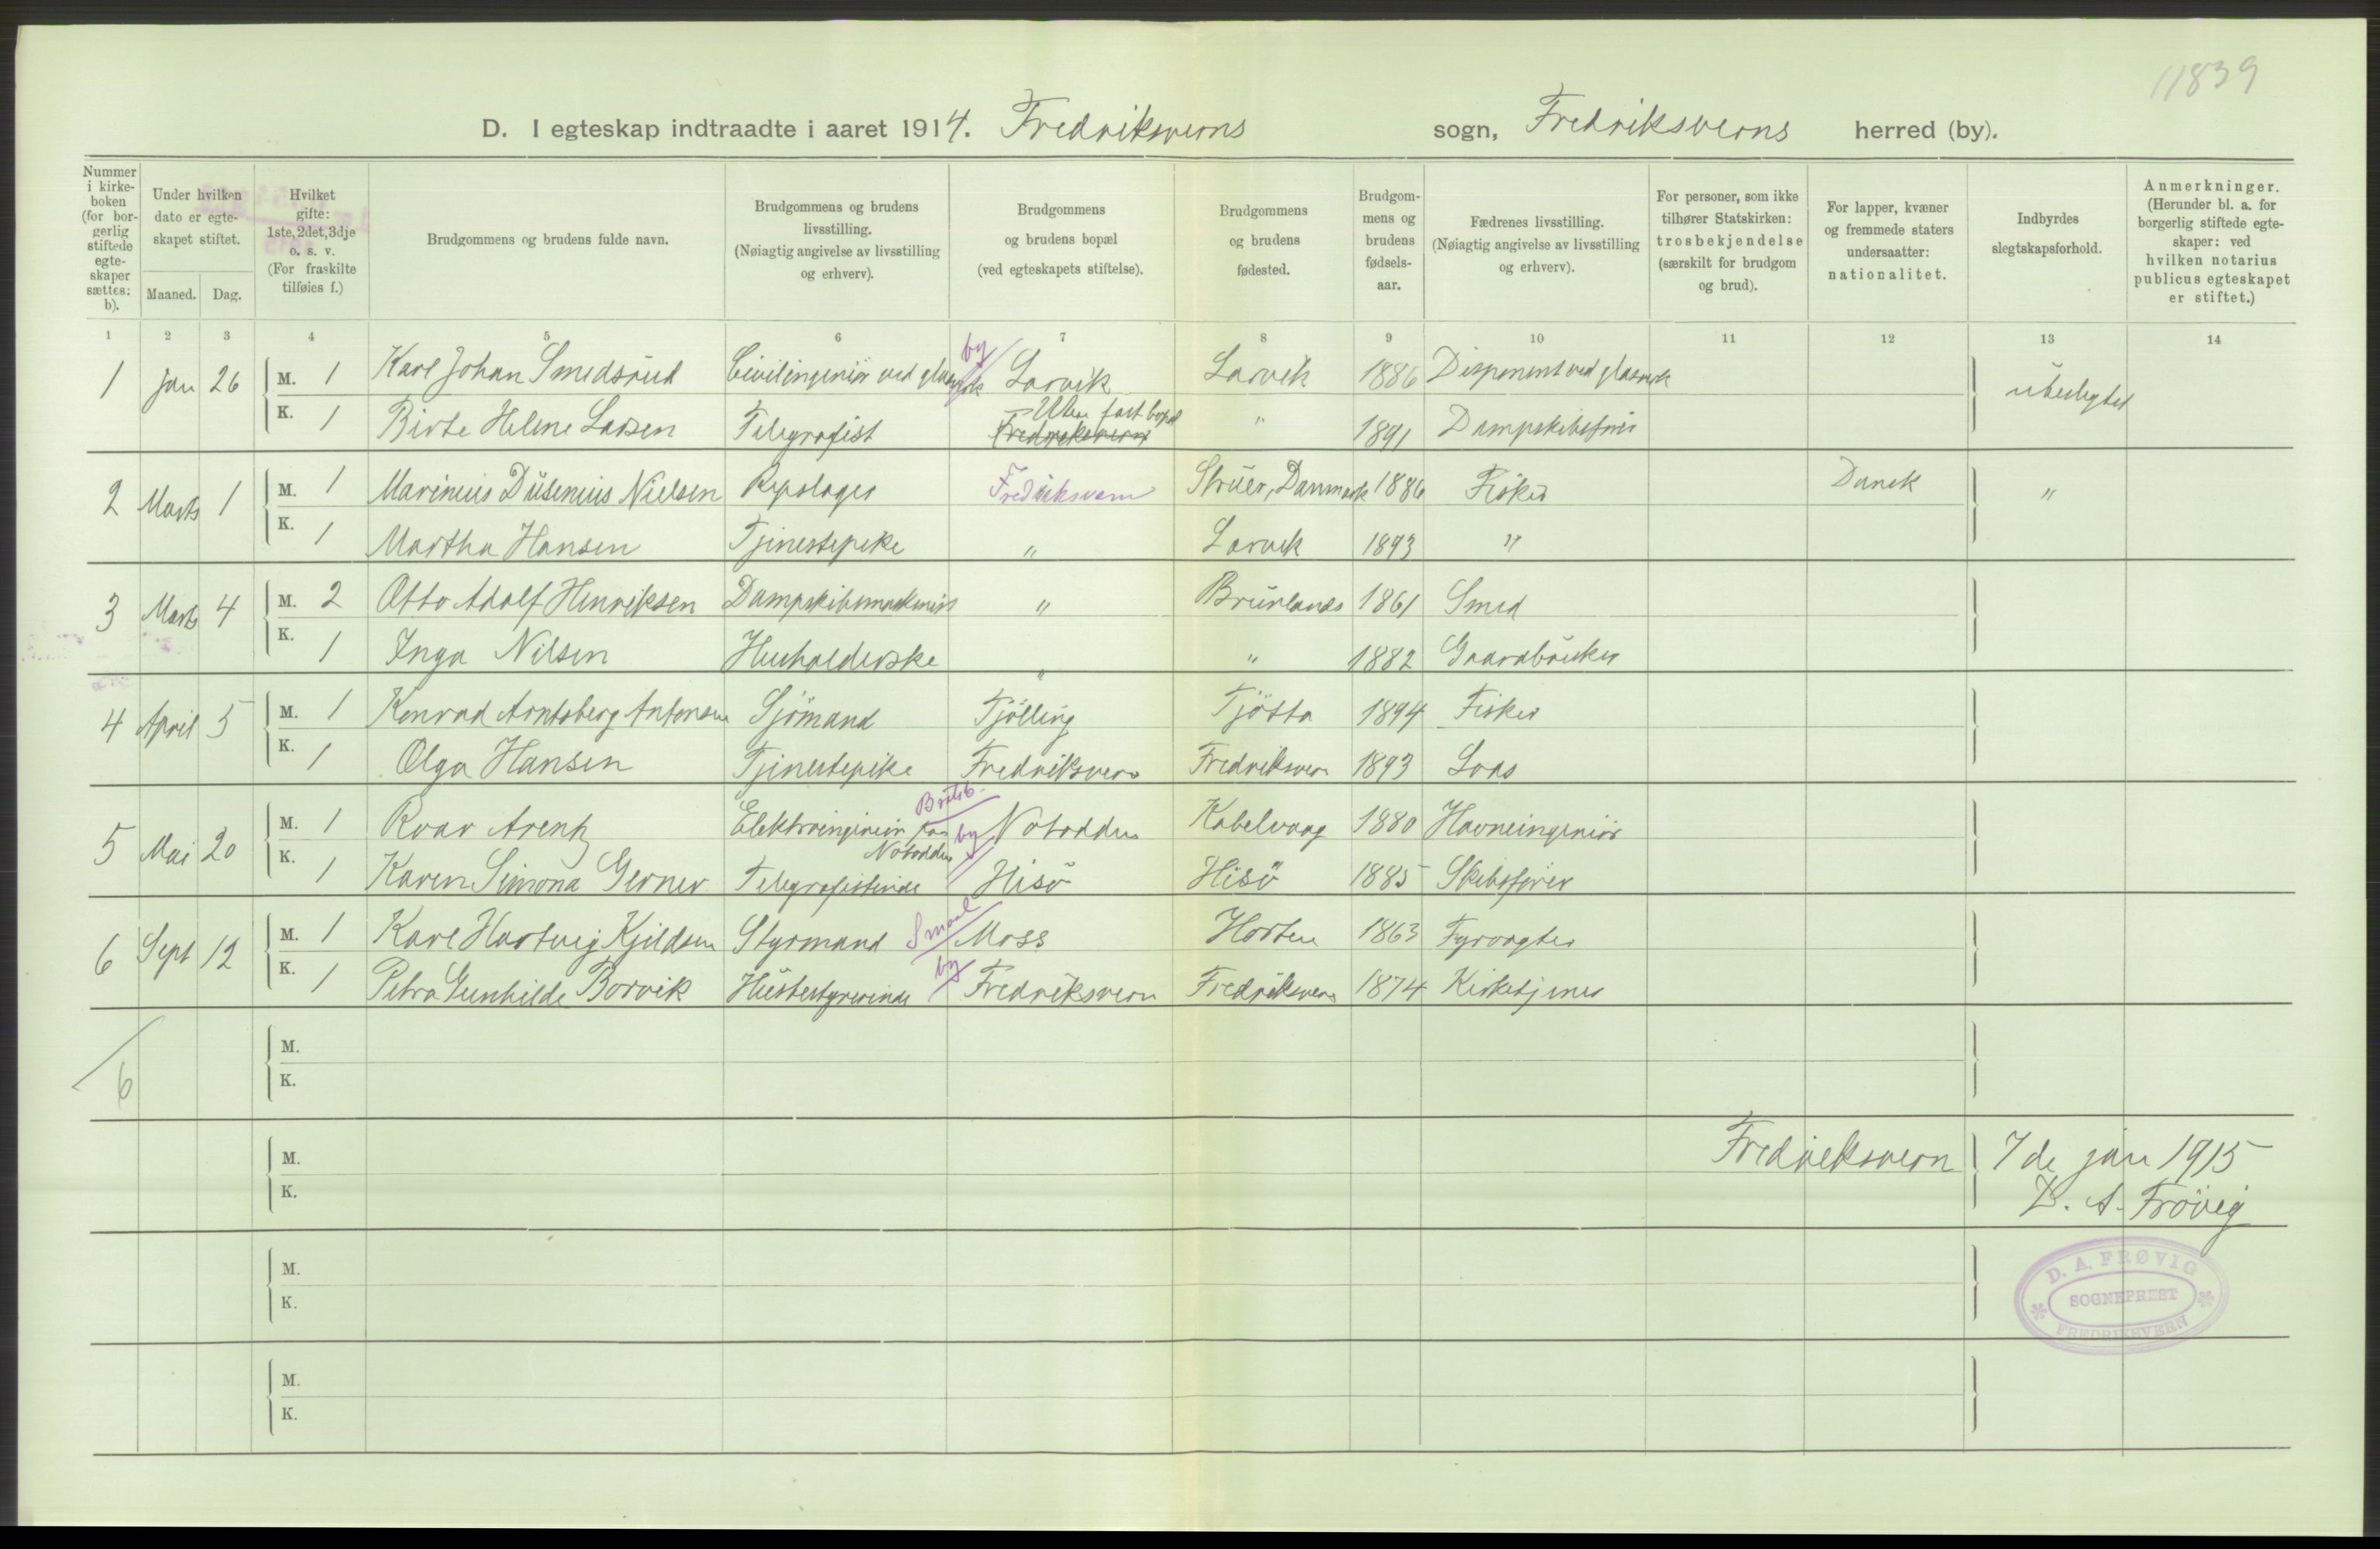 11839
D. I egteskap indtraadte i aaret 1914. Fredriksverns sogn, Fredriksverns herred (by).
Nummer i kirke-boken (for bor-gerlig stiftede egte-skaper sættes: b).
Under hvilken dato er egte-skapet stiftet.
Maaned. Dag.
Hvilket gifte: 1ste, 2det, 3dje o. s. v. (For fraskilte tilføies f.)
Brudgommens og brudens fulde navn.
Brudgommens og brudens livsstilling. (Nøiagtig angivelse av livsstilling og erhverv).
Brudgommens og brudens bopæl (ved egteskapets stiftelse).
Brudgommens og brudens fødested.
Brudgom-mens og brudens fødsels-aar.
Fædrenes livsstilling. (Nøiagtig angivelse av livsstilling og erhverv).
For personer, som ikke tilhører Statskirken: trosbekjendelse (særskilt for brudgom og brud).
For lapper, kvæner og fremmede staters undersaatter: nationalitet.
Indbyrdes slegtskapsforhold.
Anmerkninger. (Herunder bl. a. for borgerlig stiftede egte-skaper: ved hvilken notarius publicus egteskapet er stiftet.)
1 2 3 4 5 6 7 8 9 10 11 12 13 14
1 Jan 26 M. 1 Karl Johan Smedsrud Civilingeniör ved glasverk by Larvik Larvik 1886 Disponent ved glasverk ubeslegtet
K. 1 Birte Helene Larsen Telegrafist Uten fast bopæl Fredriksvern " 1891 Dampskibsförer
2 Marts 1 M. 1 Marinius Düsenius Nielsen Repslager Fredriksvern Struer, Danmark 1886 Fisker Dansk "
K. 1 Martha Hansen Tjenestepike " Larvik 1893 "
3 Marts 4 M. 2 Otto Adolf Henriksen Dampskibsmaskinist " Brunlanes 1861 Smed
K. 1 Inga Nilsen Husholderske " " 1882 Gaardbruker
4 April 5 M. 1 Konrad Arntsberg Antonsen Sjömand Tjölling Tjötta 1894 Fisker
K. 1 Olga Hansen Tjenestepike Fredriksvern Fredriksvern 1893 Lods
5 Mai 20 M. 1 Roar Arentz Elektroingeniör paa Notodden by Notodden Kabelvaag 1880 Havneingeniör
K. 1 Karen Simona Gerner Telegrafistinde Hisö Hisö 1885 Skibsförer
6 Sept 12 M. 1 Karl Hartvig Kjeldsen Styrmand Smaal by Moss Horten 1863 Fyrvogter
K. 1 Petra Gunhilde Borvik Husbestyrerinde Fredriksvern Fredriksvern 1874 Kirketjener
6
M.
K.
M. Fredriksvern 7de jan 1915
K. D. A. Frövig
M.
K.
D. A. FRØVIG
SOGNEPREST
FREDRIKSVÆRN
M.
K.